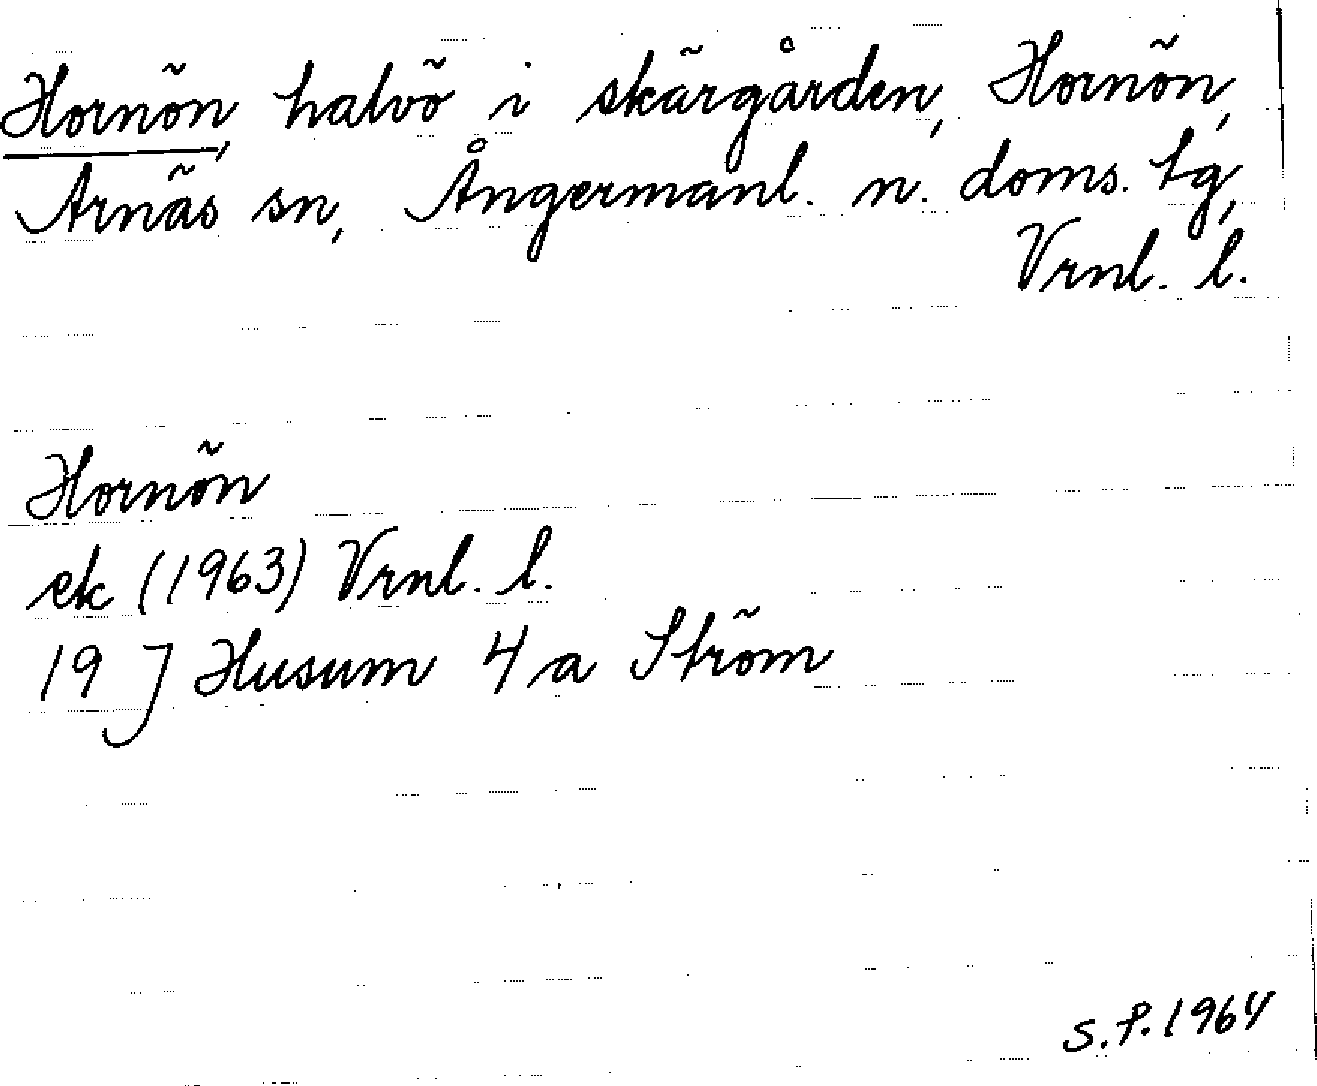 Hornön, halvö i skärgården, Hornön,
Arnäs sn, Ångermanl. n. doms. tg,
Vrnl. l.
Hornön
ek (1963) Vrnl. l.
19 J Husum 4 a Ström
S.F. 1964